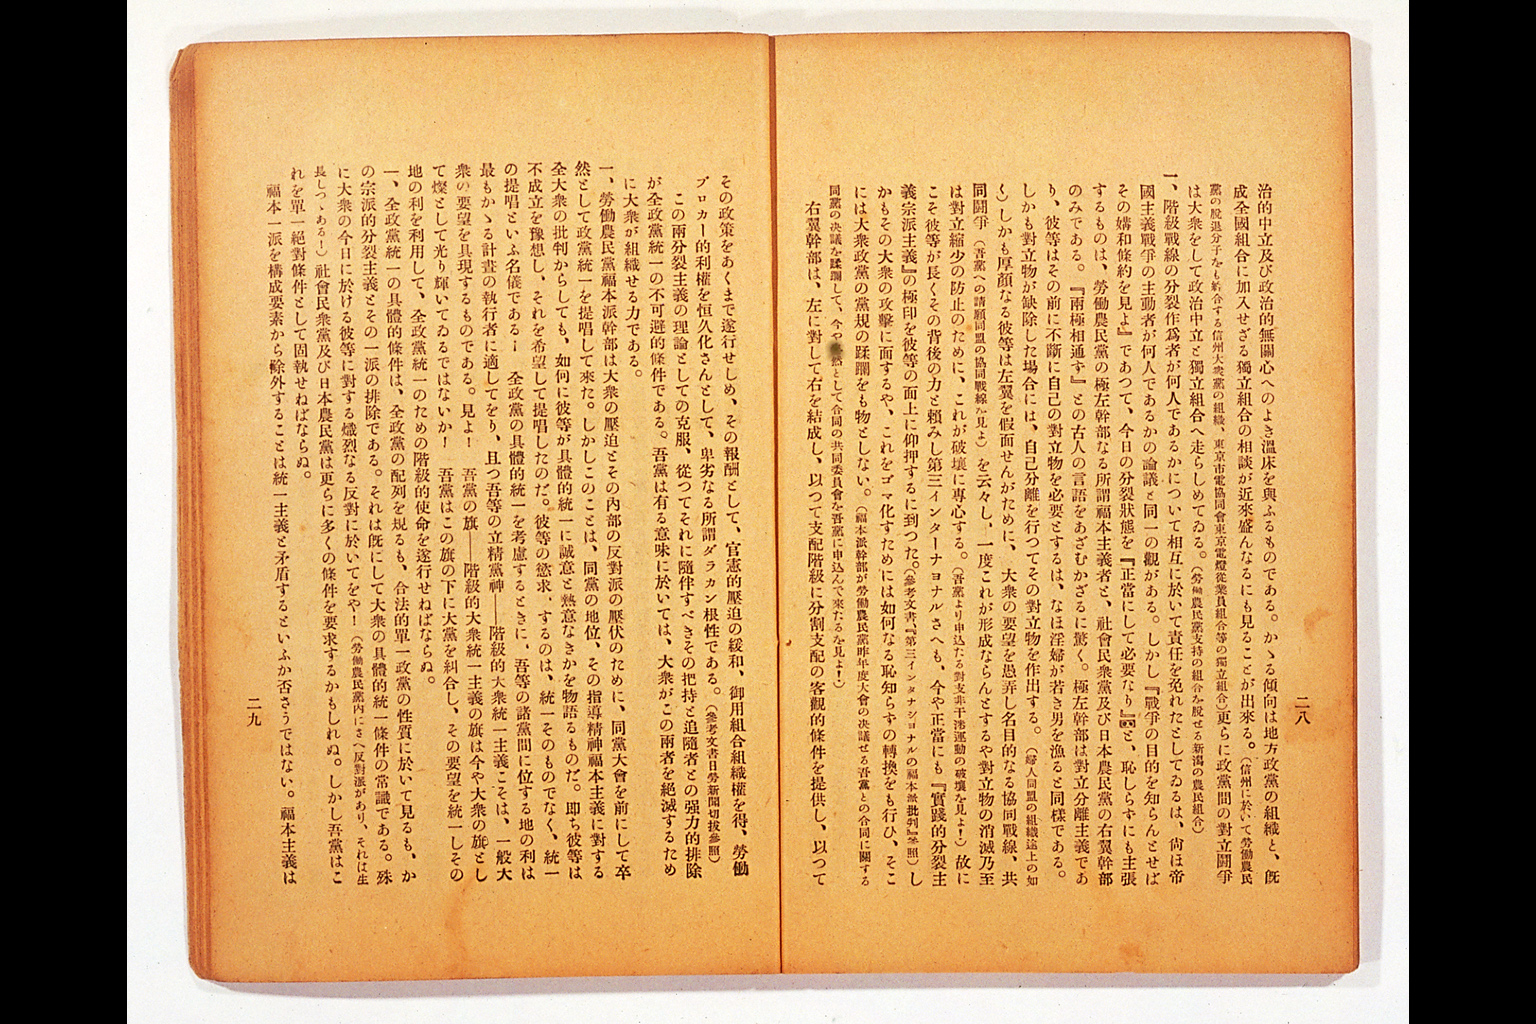 二八
治的中立及び政治的無關心へのよき溫床を與ふるものである。かゝる傾向は地方政黨の組織と、旣
成全國組合に加入せざる獨立組合の相談が近來盛んなるにも見ることが出來る。(信州に於いて勞働農民
黨の脫退分子をも糾合する信州大衆黨の組織、東京市電協同會東京電燈從業員組合等の獨立組合)更らに政黨間の對立鬪爭
は大衆をして政治中立と獨立組合へ走らしめてゐる。(勞働農民黨支持の組合を脫せる新潟の農民組合)
一、階級戰線の分裂作爲者が何人であるかについて相互に於いて責任を免れたとしてゐるは、尙ほ帝
國主義戰爭の主動者が何人であるかの論議と同一の觀がある。しかし『戰爭の目的を知らんとせば
その媾和條約を見よ』であつて、今日の分裂狀態を『正當にして必要なり』と、恥しらずにも主張
するものは、勞働農民黨の極左幹部なる所謂福本主義者と、社會民衆黨及び日本農民黨の右翼幹部
のみである。『兩極相通ず』との古人の言語をあざむかざるに驚く。極左幹部は對立分離主義であ
り、彼等はその前に不斷に自己の對立物を必要とするは、なほ淫婦が若き男を漁ると同樣である。
しかも對立物が缺除した場合には、自己分離を行つてその對立物を作出する。(婦人同盟の組織途上の如
く)しかも厚顏なる彼等は左翼を假面せんがために、大衆の要望を愚弄し名目的なる協同戰線、共
同鬪爭(吾黨への請願同盟の協同戰線を見よ)を云々し、一度これが形成ならんとするや對立物の消滅乃至
は對立縮少の防止のために、これが破壞に專心する。(吾黨より申込たる對支非干涉運動の破壞を見よ!)故に
こそ彼等が長くその背後の力と賴みし第三インターナヨナルさへも、今や正當にも『實踐的分裂主
義宗派主義』の極印を彼等の面上に仰押するに到つた。(參考文書、『第三インタナシヨナルの福本派批判』參照)し
かもその大衆の攻擊に面するや、これをゴマ化すためには如何なる恥知らずの轉換をも行ひ、そこ
には大衆政黨の黨規の蹂躙をも物としない。(福本派幹部が勞働農民黨昨年度大會の決議せる吾黨との合同に關する
同黨の決議を蹂躙して、今や 然として合同の共同委員會を吾黨に申込んで來たるを見よ!)
右翼幹部は、左に對して右を結成し、以つて支配階級に分割支配の客觀的條件を提供し、以つて
その政策をあくまで遂行せしめ、その報酬として、官憲的壓迫の緩和、御用組合組織權を得、勞働
ブロカー的利權を恒久化さんとして、卑劣なる所謂ダラカン根性である。(參考文書日勞新聞切拔參照)
この兩分裂主義の理論としての克服、從つてそれに隨伴すべきその把持と追隨者との强力的排除
が全政黨統一の不可避的條件である。吾黨は有る意味に於いては、大衆がこの兩者を絕滅するため
に大衆が組織せる力である。
一、勞働農民黨福本派幹部は大衆の壓迫とその內部の反對派の壓伏のために、同黨大會を前にして卒
然として政黨統一を提唱して來た。しかしこのことは、同黨の地位、その指導精神福本主義に對する
全大衆の批判からしても、如何に彼等が具體的統一に誠意と熱意なきかを物語るものだ。卽ち彼等は
不成立を豫想し、それを希望して提唱したのだ。彼等の慾求、するのは、統一そのものでなく、統一
の提唱といふ名儀である!　全政黨の具體的統一を考慮するときに、吾等の諸黨間に位する地の利は
最もかゝる計畫の執行者に適してをり、且つ吾等の立精黨神――階級的大衆統一主義こそは、一般大
衆の要望を具現するものである。見よ!　吾黨の旗――階級的大衆統一主義の旗は今や大衆の旗とし
て燦として光り輝いてゐるではないか!　吾黨はこの旗の下に大黨を糾合し、その要望を統一しその
地の利を利用して、全政黨統一のための階級的使命を遂行せねばならぬ。
一、全政黨統一の具體的條件は、全政黨の配列を規るも、合法的單一政黨の性質に於いて見るも、か
の宗派的分裂主義とその一派の排除である。それは旣にして大衆の具體的統一條件の常識である。殊
に大衆の今日に於ける彼等に對する熾烈なる反對に於いてをや!(勞働農民黨內にさへ反對派があり、それは生
長しつゝある!)社會民衆黨及び日本農民黨は更らに多くの條件を要求するかもしれぬ。しかし吾黨はこ
れを單一絕對條件として固執せねばならぬ。
福本一派を構成要素から除外することは統一主義と矛盾するといふか否さうではない。福本主義は
二九